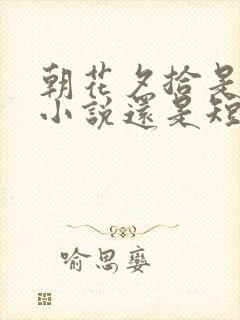 朝花夕拾是
小說還是短
喻思孌